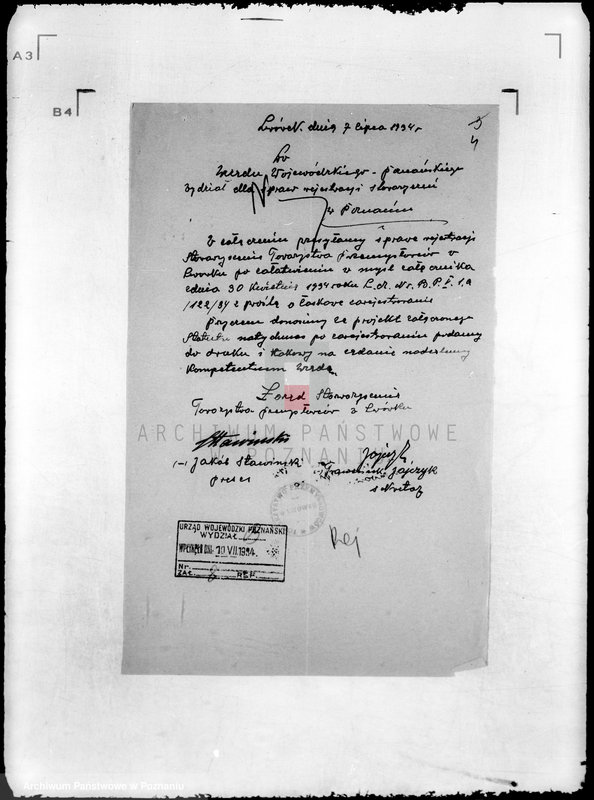 A3
B4
Lwówek. dnia 7 lipca 1934 r
Do
Urzędu Wojewódzkiego - Poznańskiego
Wydział dla spraw rejestracji stowarzyszeń
w Poznaniu
W załączeniu przesyłamy sprawę rejestracji
Stowarzyszenia Towarzystwa Przemysłowców w
Lwówku po załatwieniu w myśl załącznika
z dnia 30 kwietnia 1934 roku L. dz. Nr. B.P.
/122/34 z prośbą o łaskawe zarejestrowanie
Przyczem donosimy że projekt załączonego
Statutu natychmiast po zarejestrowaniu podamy
do druku i takowy na żądanie nadeślemy
Kompetentnemu Urzędu.
Zarząd Stowarzyszenia
Towarzystwa Przemysłowców w Lwówku
ARCHIWUM PAŃSTWOWE
W POZNANIU
Sławiński
(-) Jakób Sławiński
prezes
Jajczyk
Franciszek Jajczyk
sekretarz
URZĄD WOJEWÓDZKI POZNAŃSKI
WYDZIAŁ
WPŁYNĘŁO DN. 10 VII 1934.
Nr.
ZAŁ. REF.
Rej
Archiwum Państwowe w Poznaniu